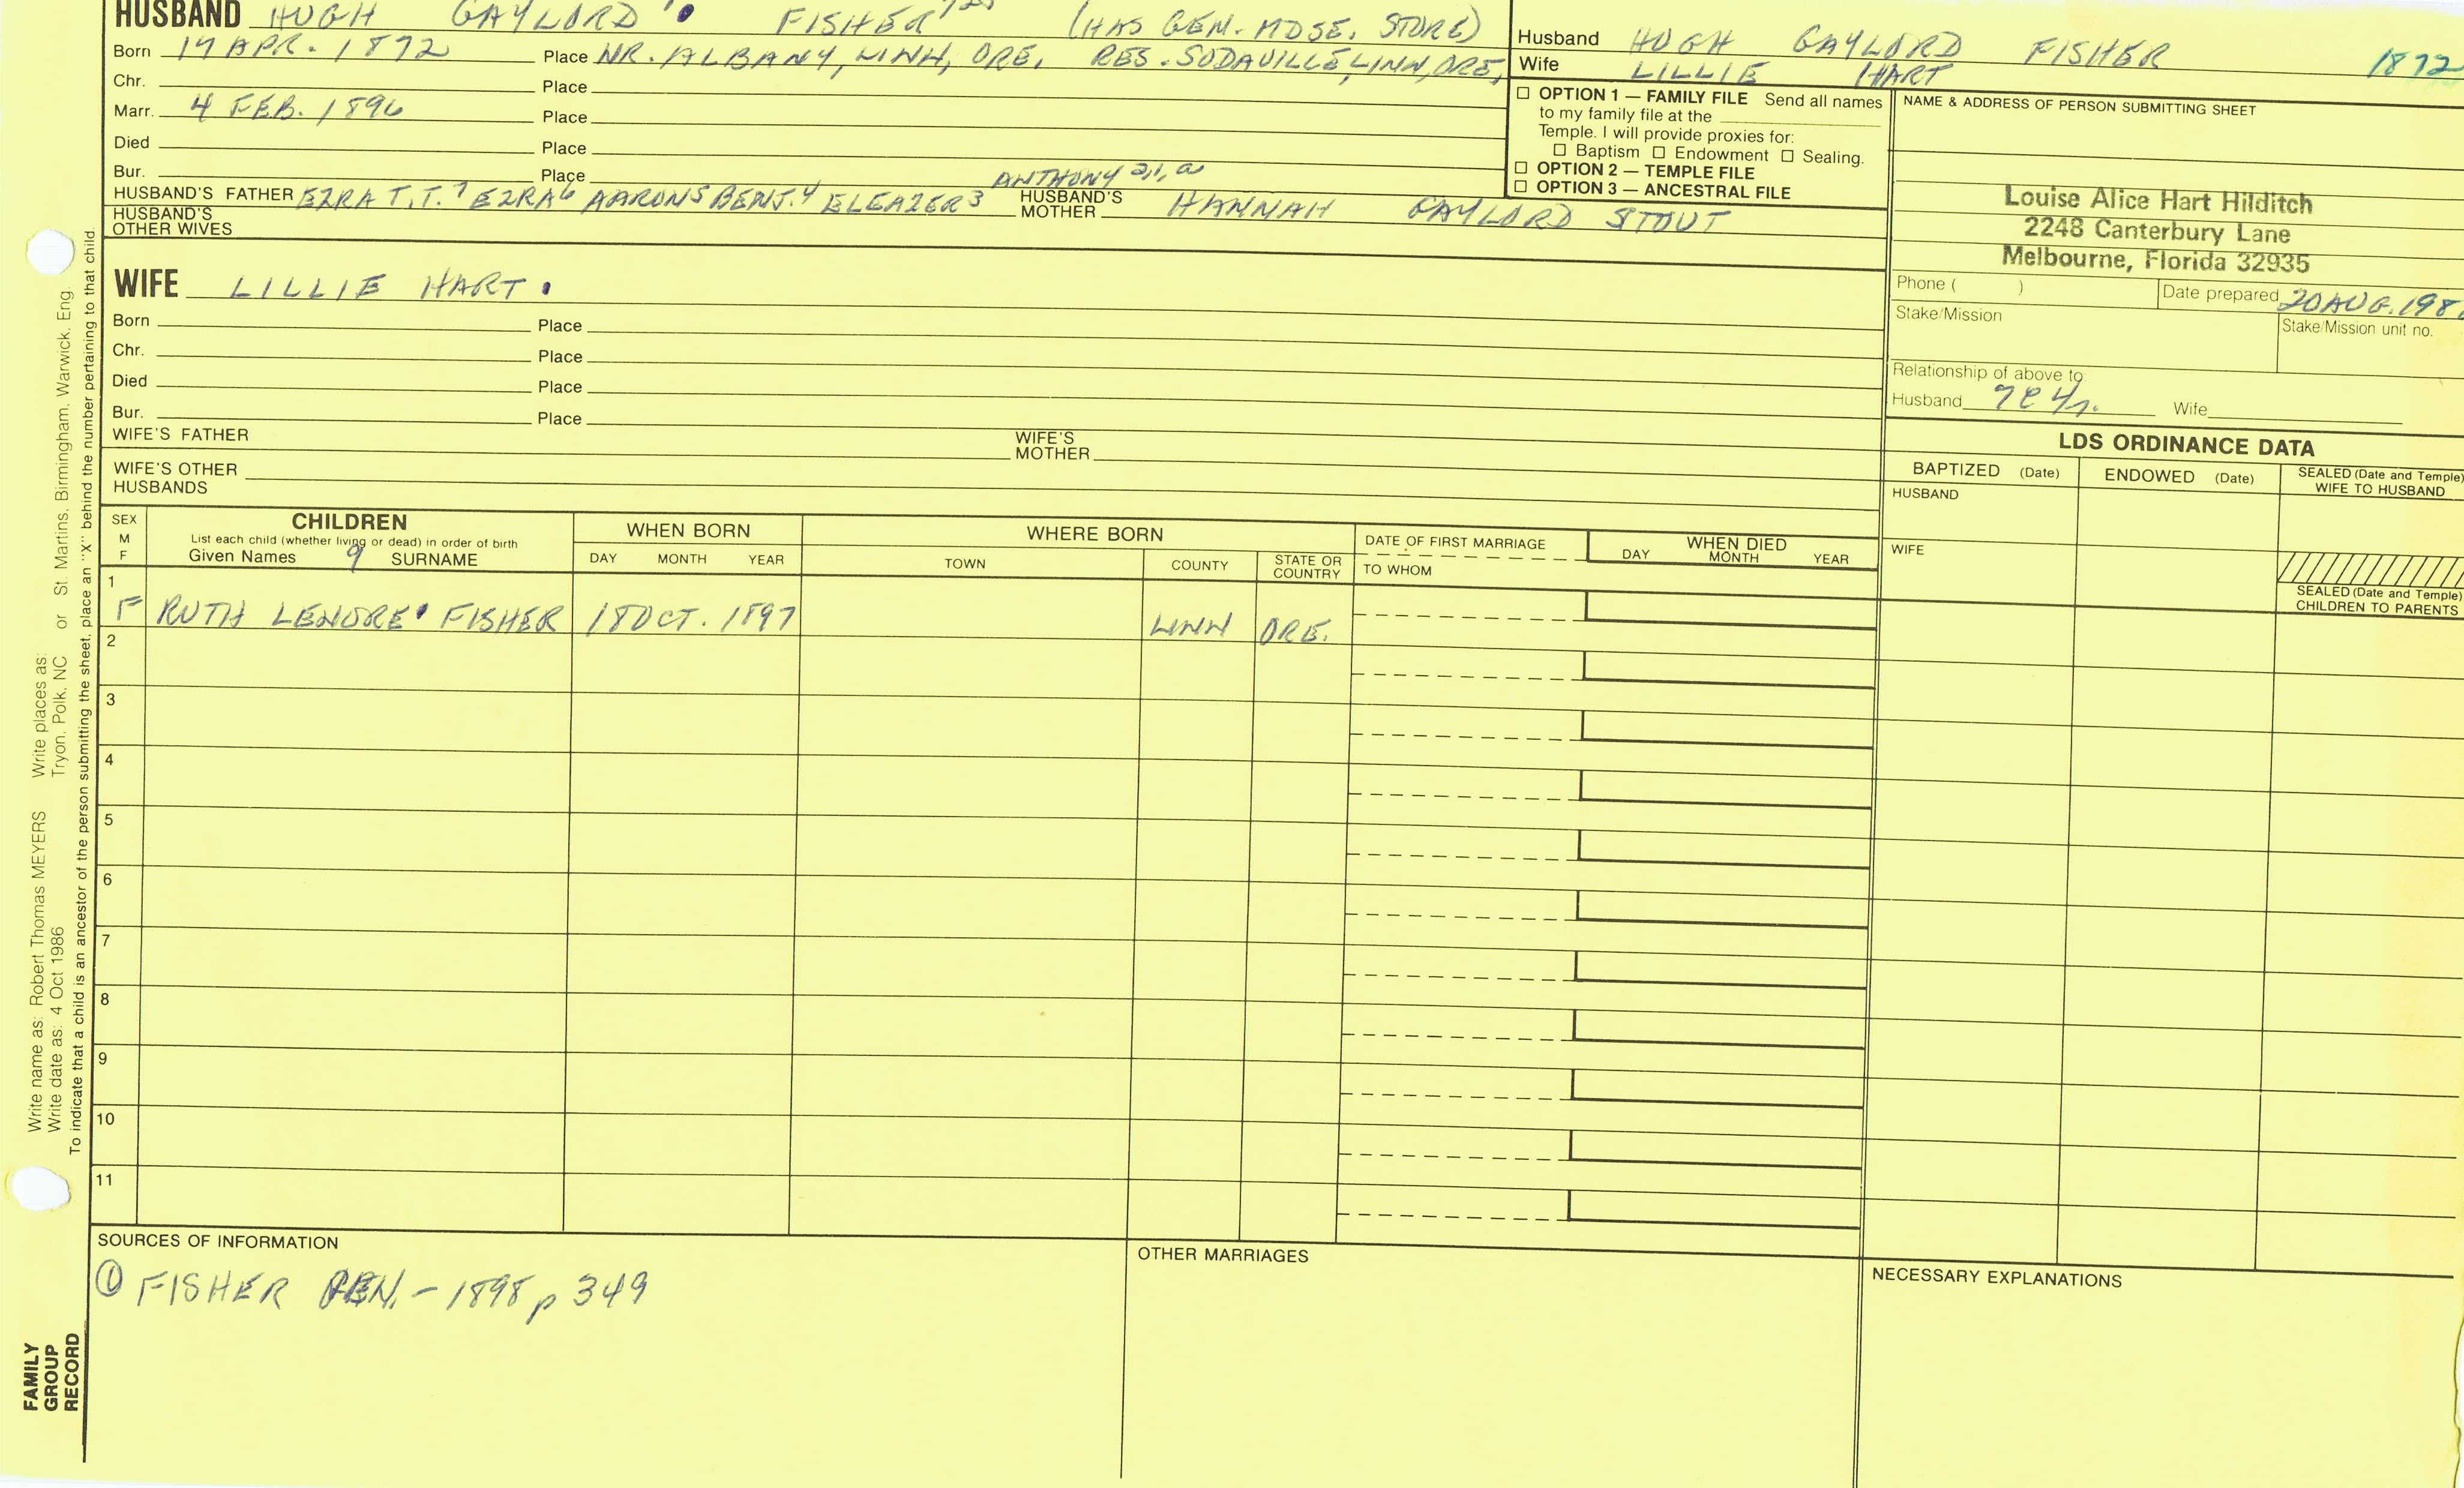 HUSBAND HUGH GAYLORD FISHER (HAS GEN. MDSE. STORE)
Born 17 APR. 1872 Place NR. ALBANY, LINN, ORE. RES. SODAVILLE, LINN, ORE,
Chr. Place
Marr. 4 FEB. 1896 Place
Died Place
Bur. Place
ANTHONY 2,1,a
HUSBAND'S FATHER EZRA T.T.7 EZRA6 AARON5 BENJ.4 ELEAZER3 HUSBAND'S MOTHER HANNAH GAYLORD STOUT
HUSBAND'S OTHER WIVES
Husband HUGH GAYLORD FISHER 1872
Wife LILLIE HART
☐ OPTION 1 — FAMILY FILE Send all names
to my family file at the
Temple. I will provide proxies for:
☐ Baptism ☐ Endowment ☐ Sealing.
☐ OPTION 2 — TEMPLE FILE
☐ OPTION 3 — ANCESTRAL FILE
NAME & ADDRESS OF PERSON SUBMITTING SHEET
Louise Alice Hart Hilditch
2248 Canterbury Lane
Melbourne, Florida 32935
Phone ( ) Date prepared 20 AUG. 198
Stake/Mission Stake/Mission unit no.
Relationship of above to:
Husband Wife
WIFE LILLIE HART.
Born Place
Chr. Place
Died Place
Bur. Place
WIFE'S FATHER WIFE'S MOTHER
WIFE'S OTHER HUSBANDS
LDS ORDINANCE DATA
BAPTIZED (Date) ENDOWED (Date) SEALED (Date and Temple) WIFE TO HUSBAND
HUSBAND
WIFE
SEALED (Date and Temple) CHILDREN TO PARENTS
SEX M F
CHILDREN
List each child (whether living or dead) in order of birth
Given Names 9 SURNAME
WHEN BORN
DAY MONTH YEAR
WHERE BORN
TOWN COUNTY STATE OR COUNTRY
DATE OF FIRST MARRIAGE
TO WHOM
WHEN DIED
DAY MONTH YEAR
1
F RUTH LENORE FISHER 18 OCT. 1897 LINN ORE.
2
3
4
5
6
7
8
9
10
11
SOURCES OF INFORMATION
① FISHER GEN. - 1898 p 349
OTHER MARRIAGES
NECESSARY EXPLANATIONS
Write name as: Robert Thomas MEYERS Write places as:
Write date as: 4 Oct 1986 Tryon, Polk, NC or St. Martins, Birmingham, Warwick, Eng.
To indicate that a child is an ancestor of the person submitting the sheet, place an "X" behind the number pertaining to that child.
FAMILY
GROUP
RECORD